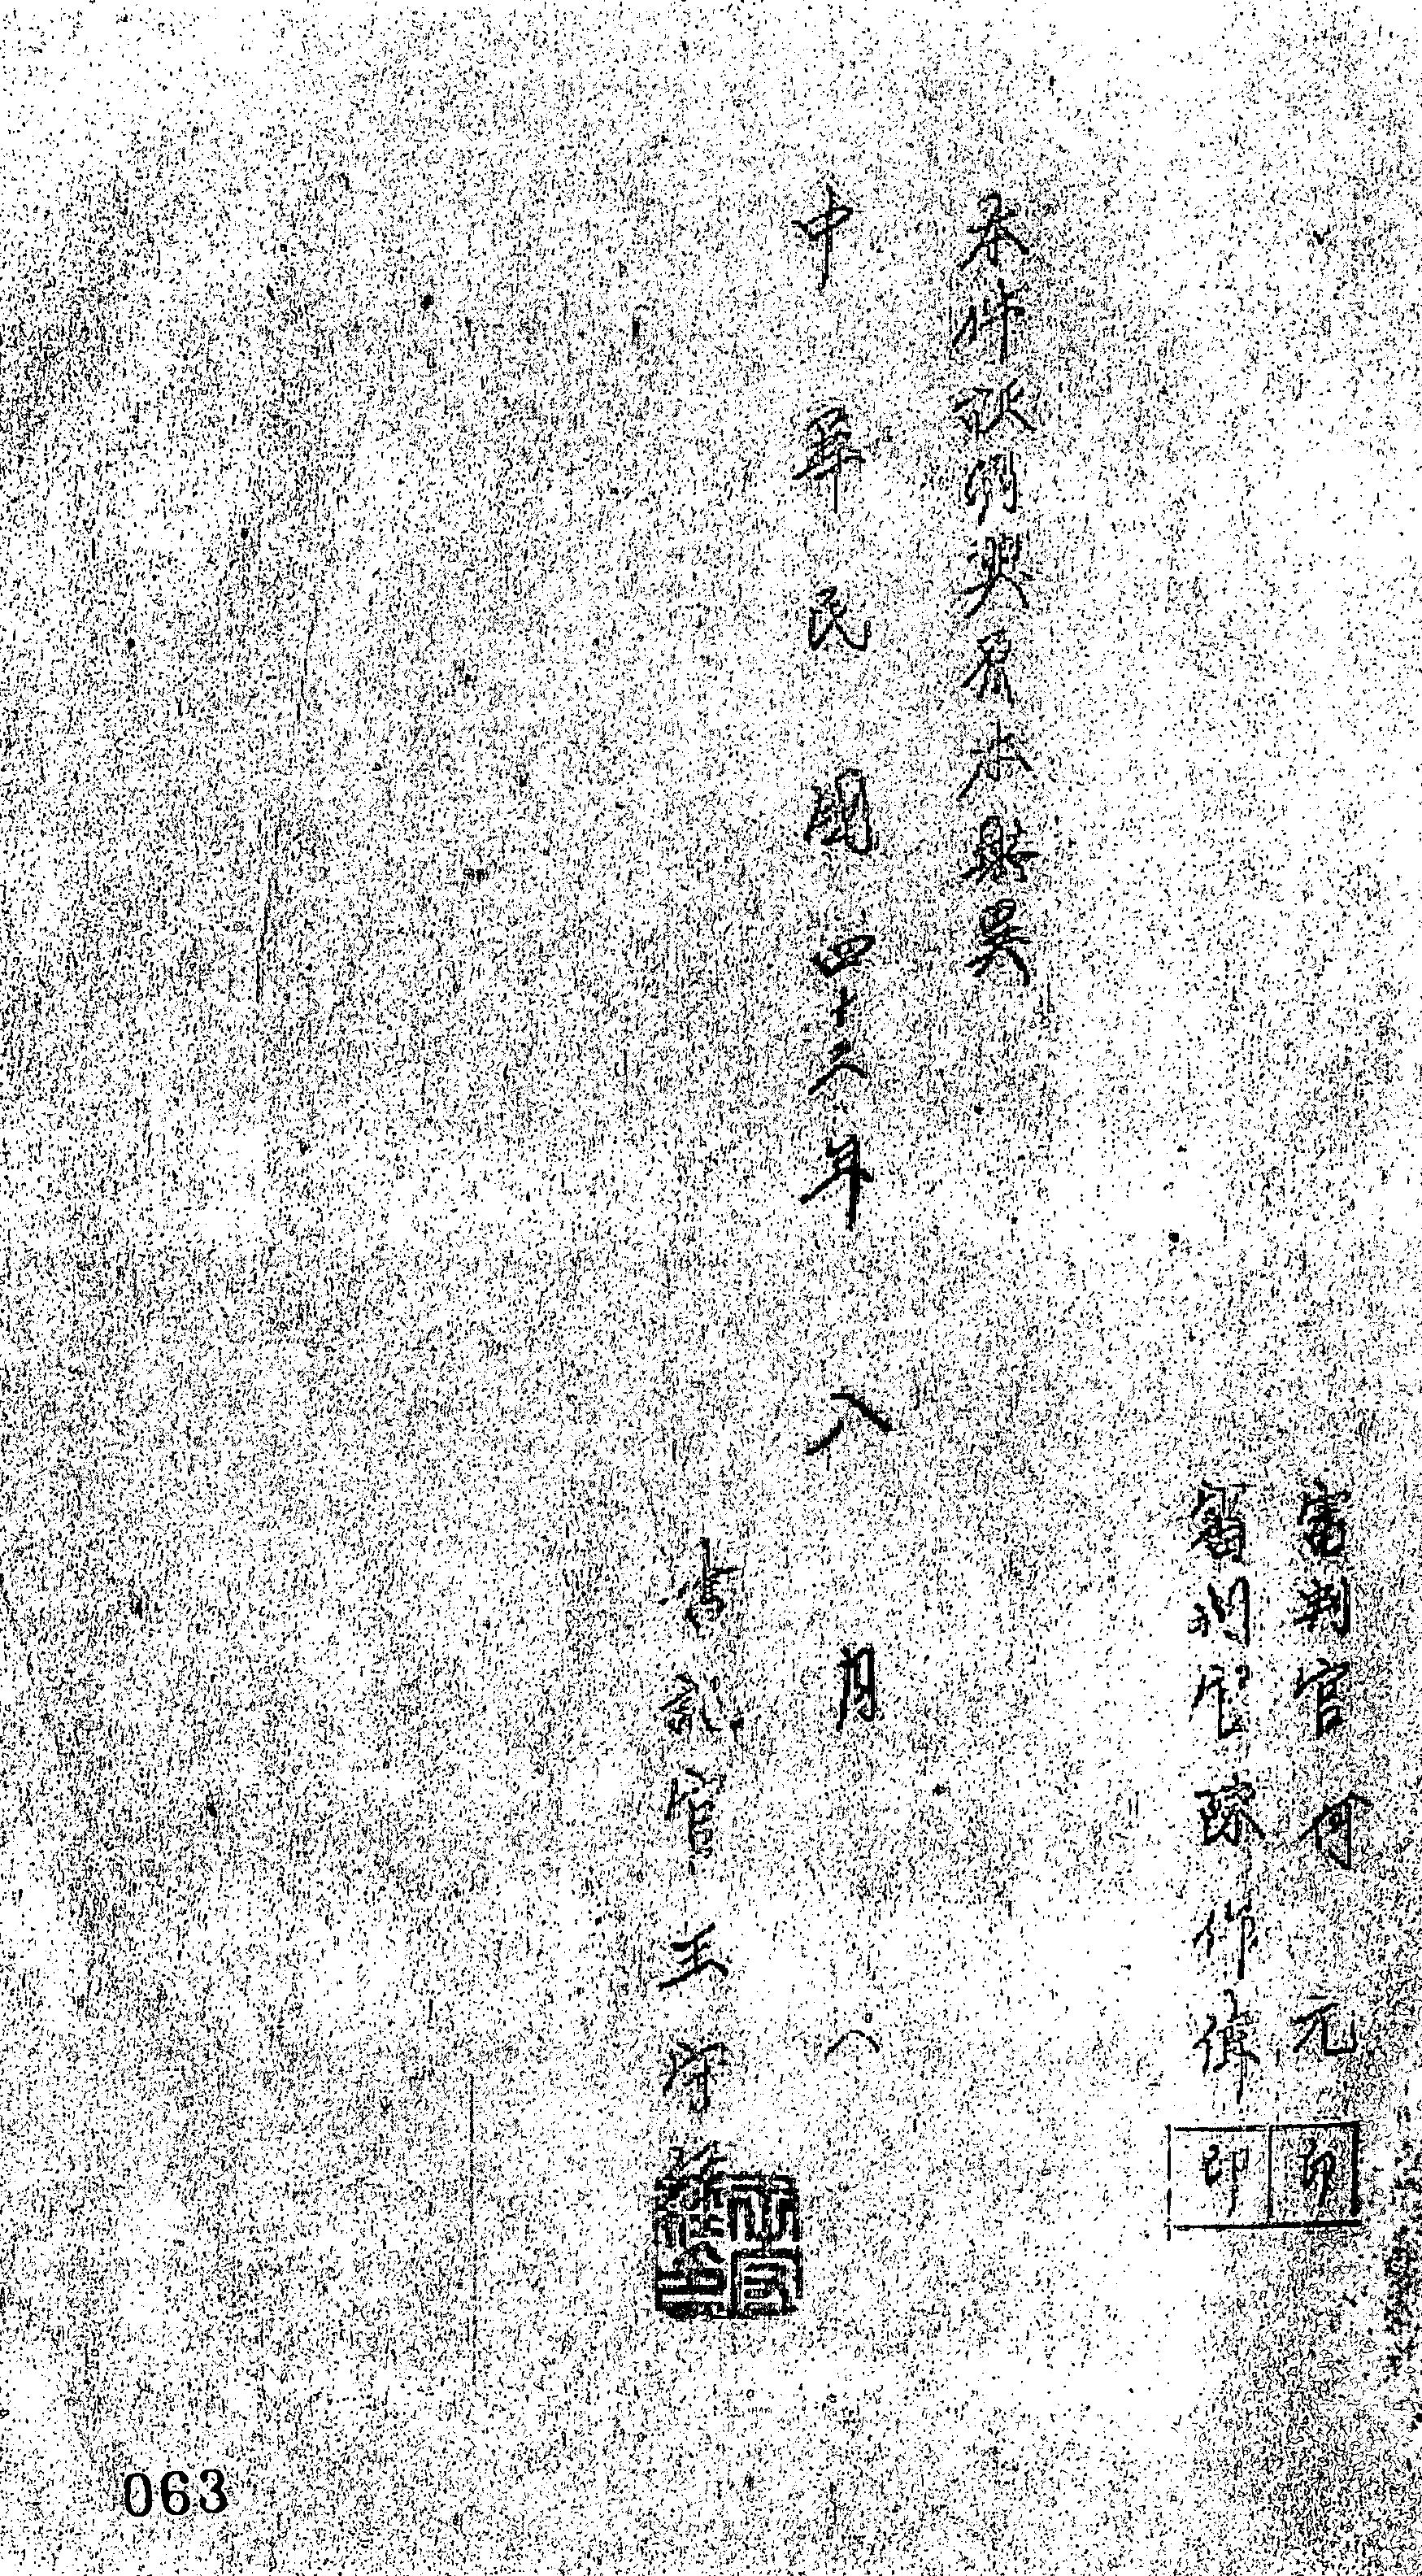 審判官何元印
審判官陳仲偉印
本件歘判與原本無異
中華民國四十二年八月八
書記官王守
063